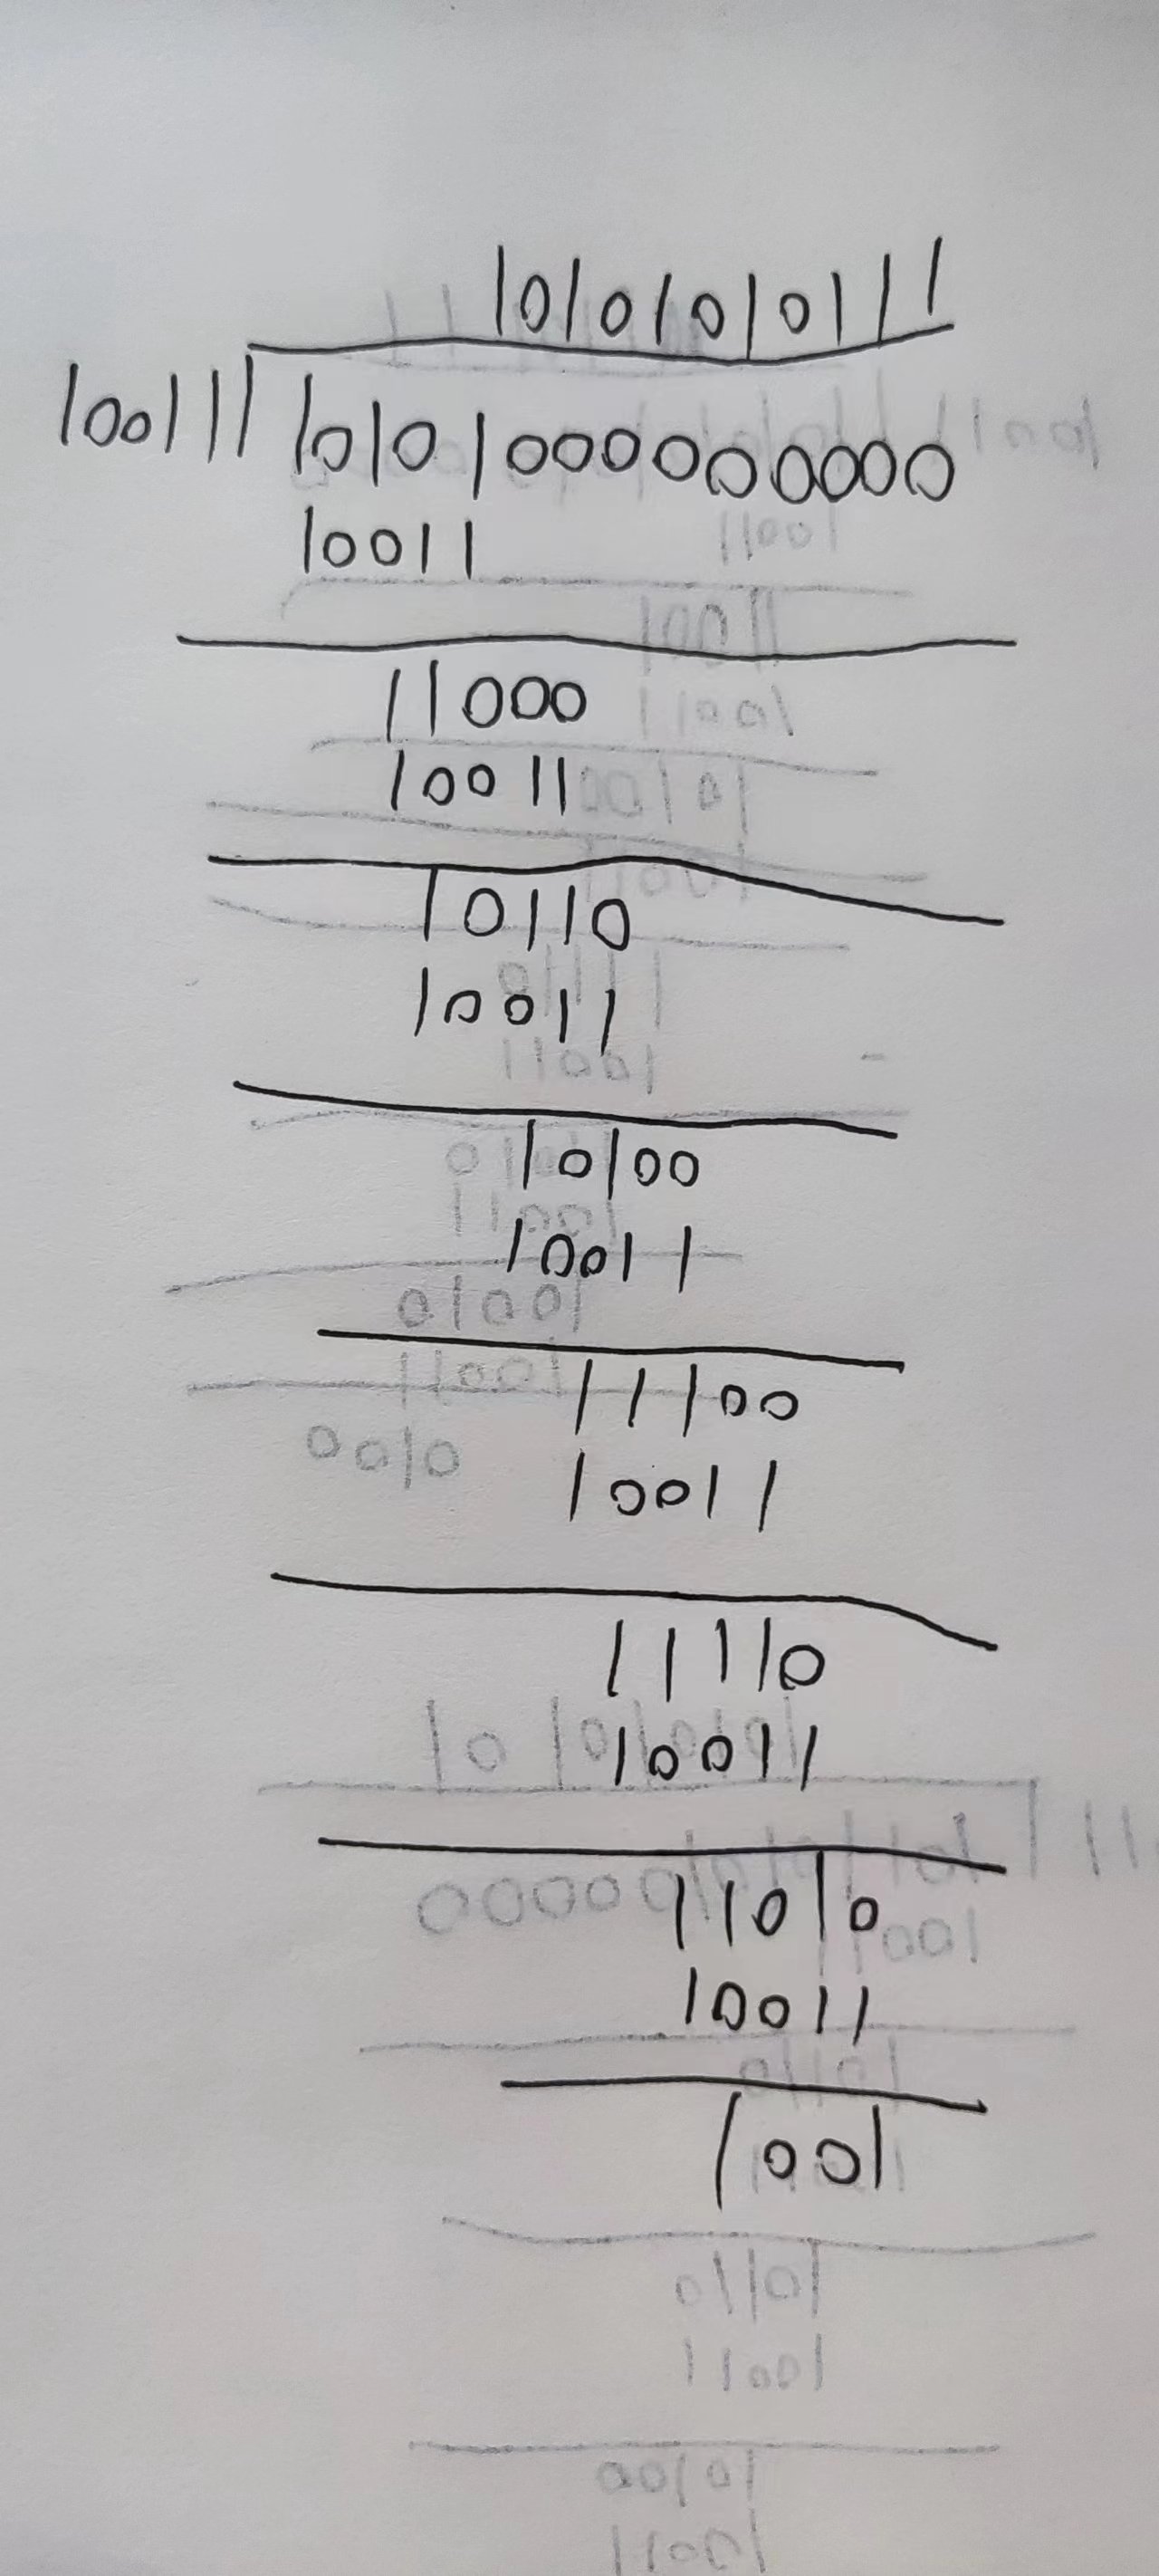 10101010111
10011|101010000000000
10011
11000
10011
10110
10011
10100
10011
11100
10011
11110
10011
11010
10011
1001